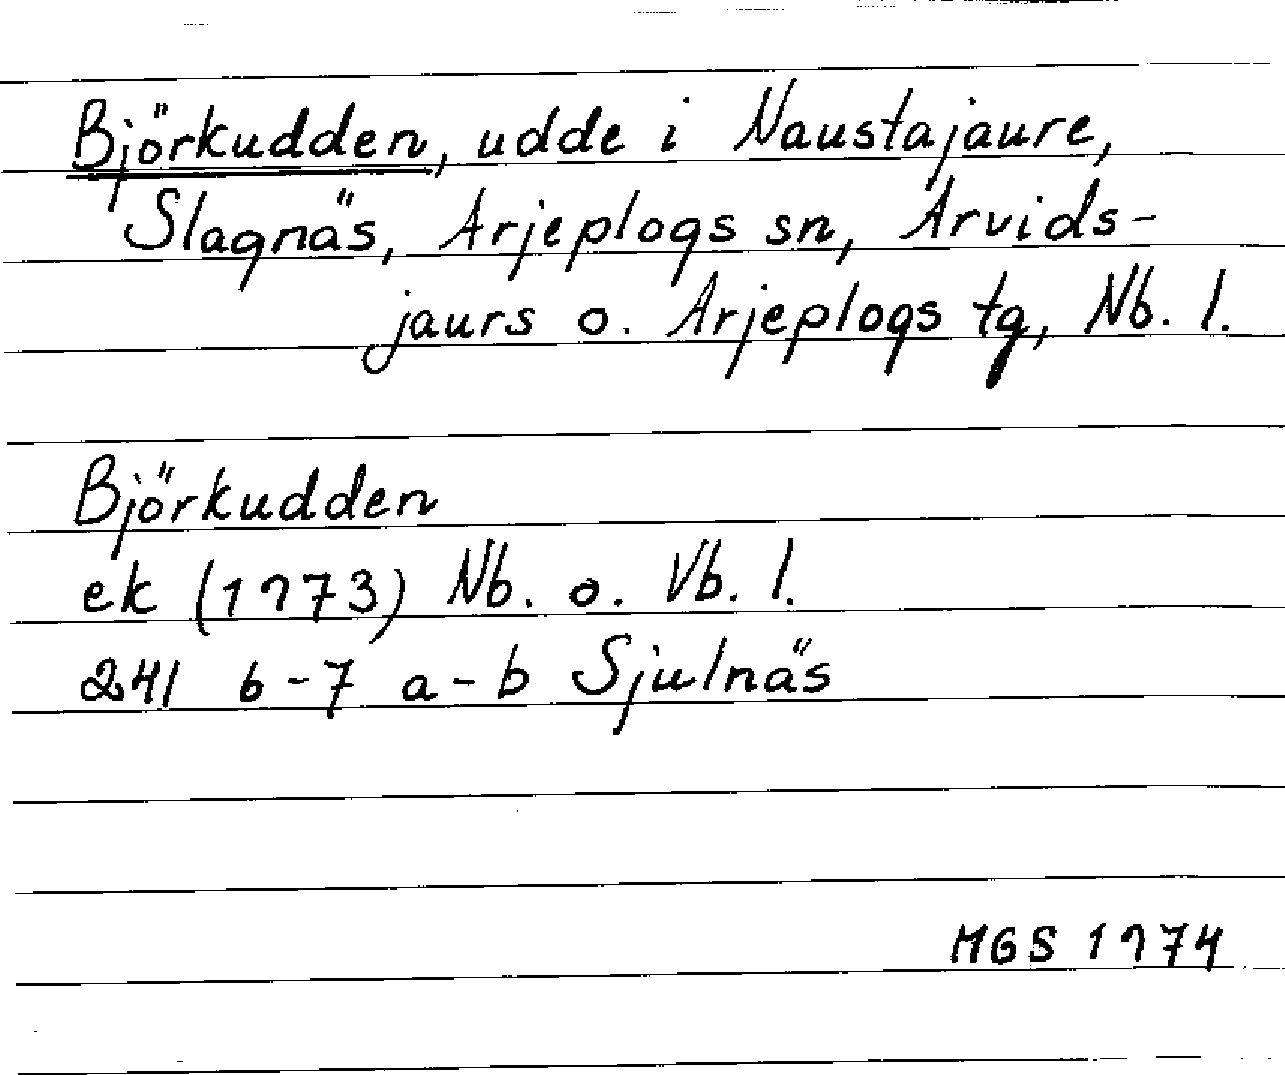 Björkudden, udde i Naustajaure,
Slagnäs, Arjeplogs sn, Arvids-
jaurs o. Arjeplogs tg, Nb. l.
Björkudden
ek (1973) Nb. o. Vb. l.
241 6-7 a-b Sjulnäs
MGS 1974